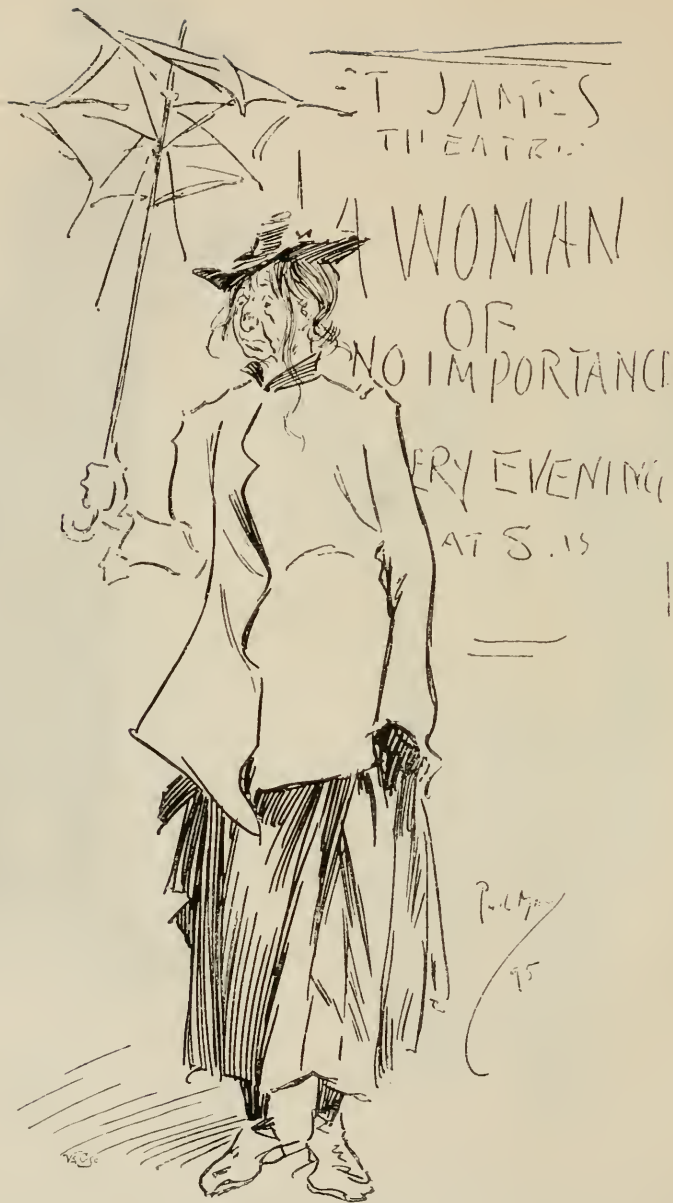 ST JAMES
THEATRE
A WOMAN
OF
NO IMPORTANCE
ERY EVENING
AT 8.15
Phil May
95